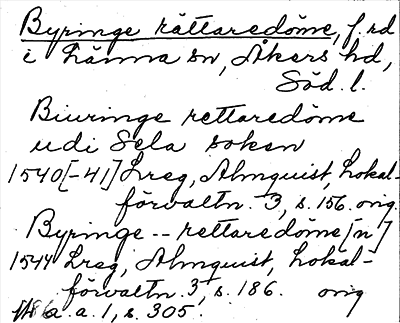 Byringe rättaredöme, f.rd
i Länna sn, Åkers hd,
Söd. l.
Biuringe rettaredöme
udi Sela soken
1540[-41] Lreg, Almquist, Lokal-
förvaltn. 3, s. 156. orig.
Byringe -- rettaredöme[n]
1544 Lreg, Almquist, Lokal-
förvaltn. 3, s. 186. orig
a. a. 1, s. 305.